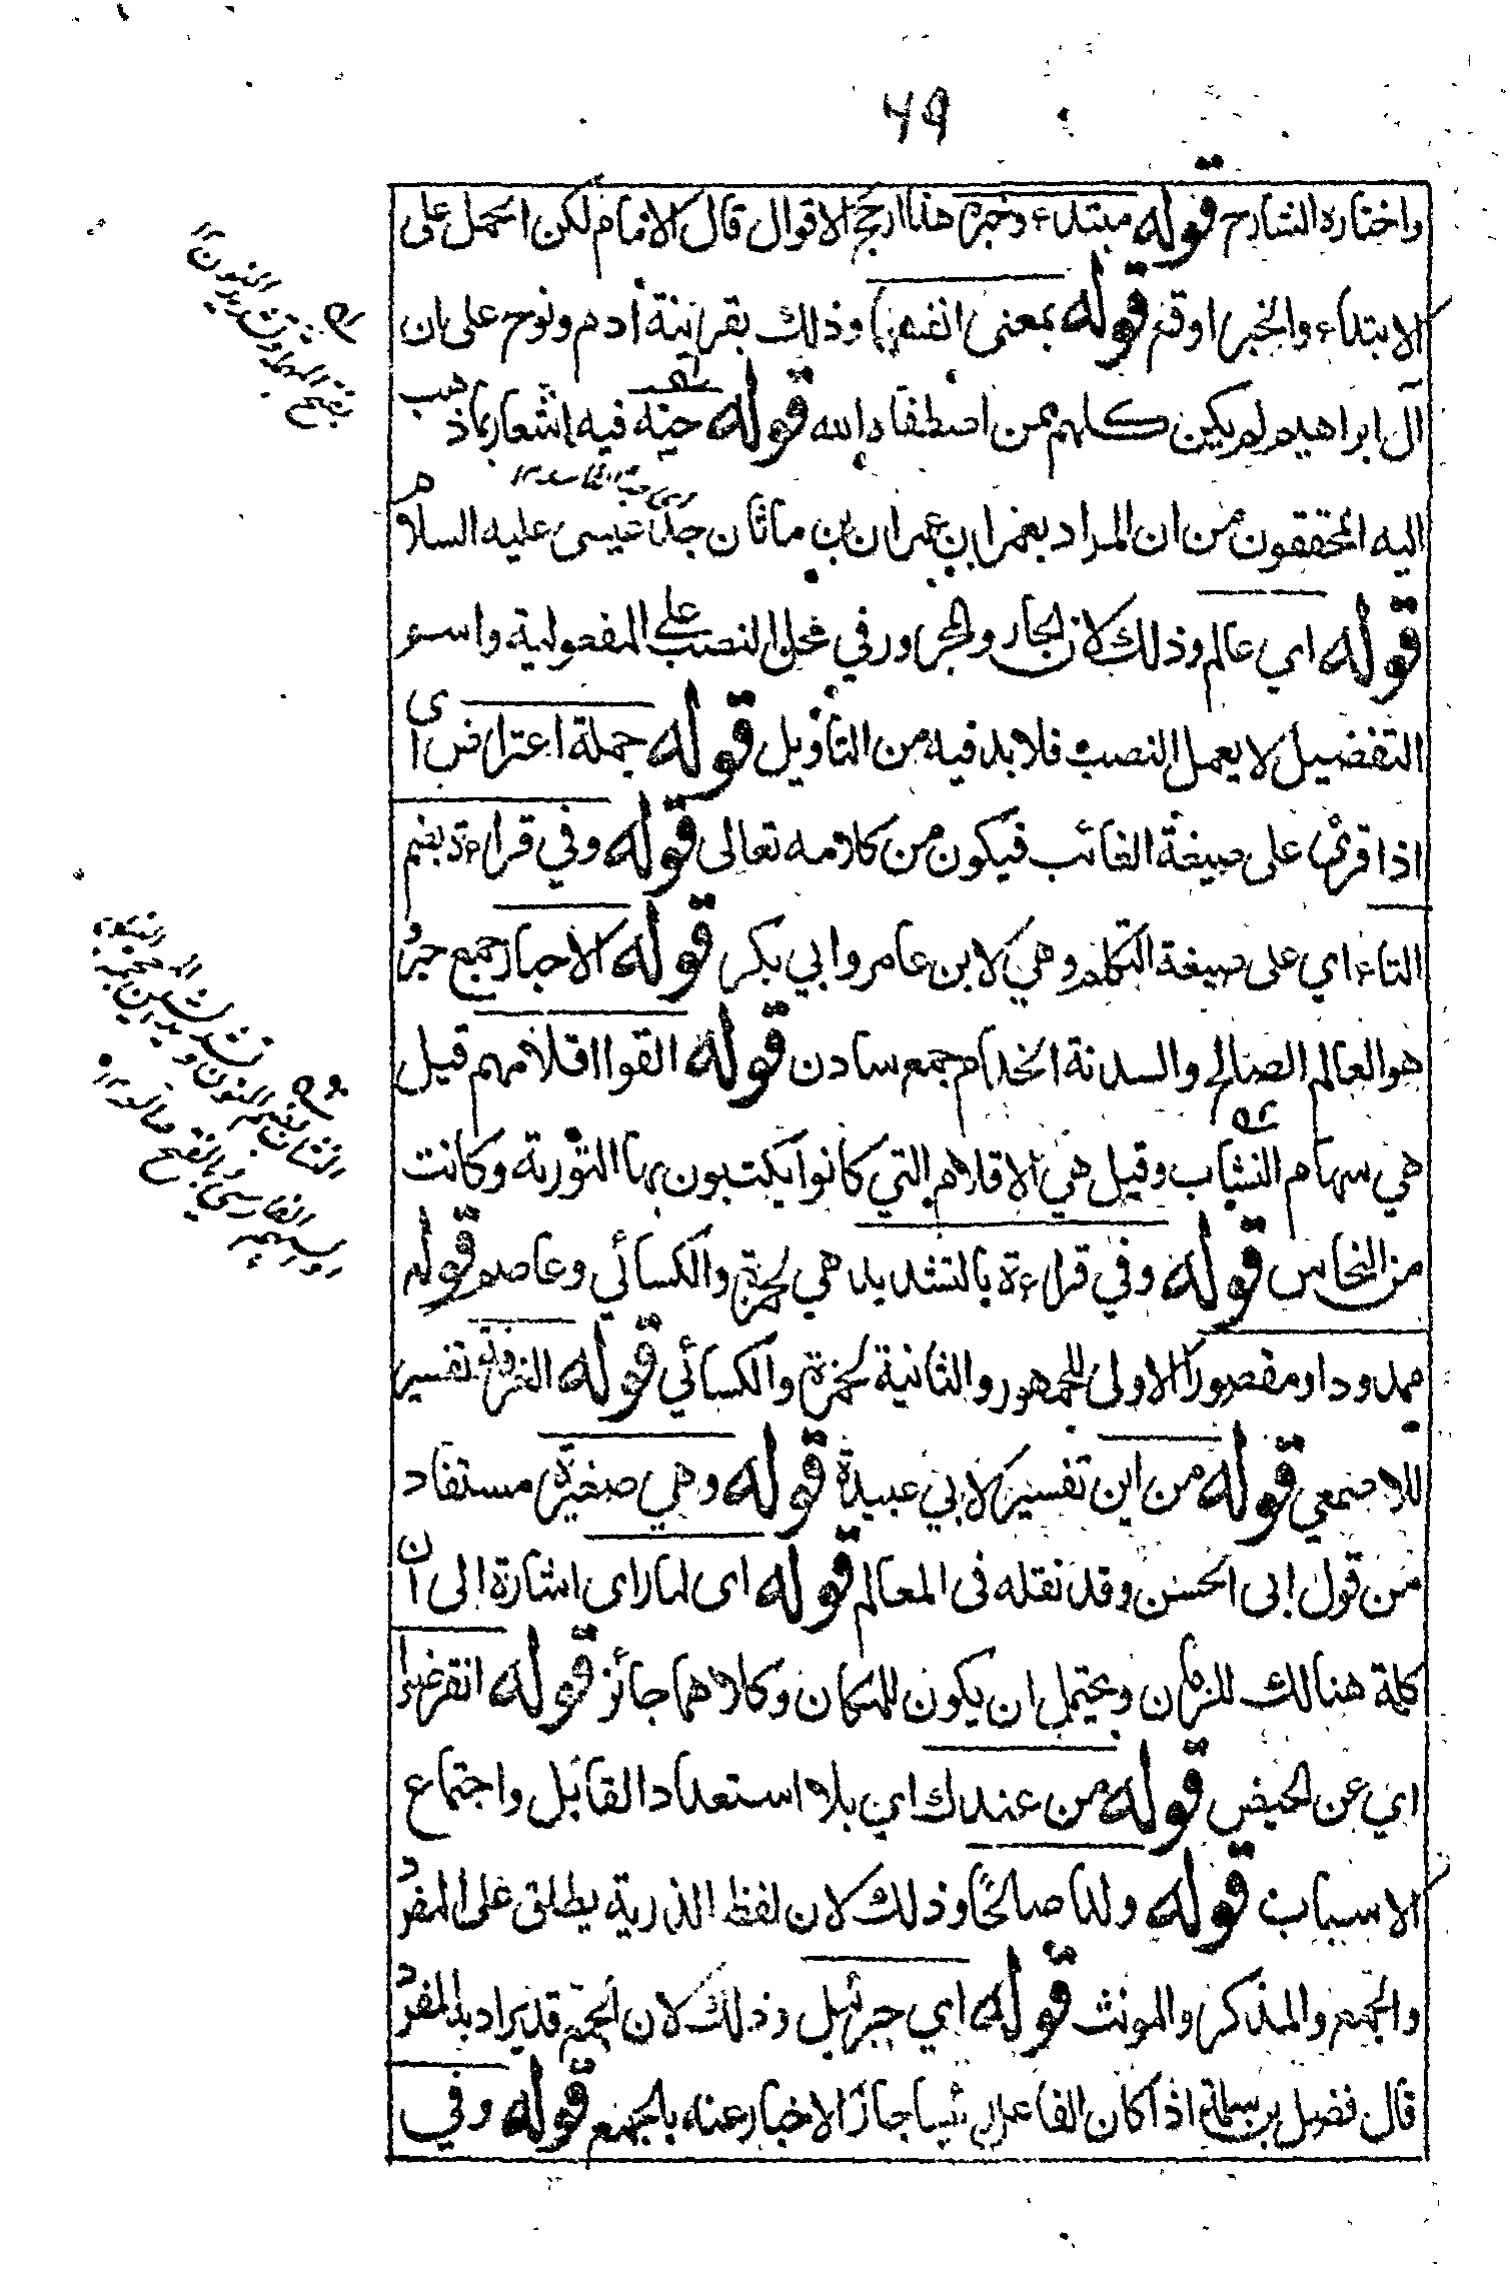 49
واختاره الشارح قوله مبتدء وخبره هذا ارجح الاقوال قال الامام لكن الحمل على
الابتداء والخبر اوقع قوله بمعنى انفسهما وذلك بقرينة ادم ونوح على ان
آل ابراهيم لم يكن كلهم ممن اصطفاه الله قوله حنة فيه اشعار بما ذهب
اليه المحققون من ان المراد بعمران عمران بن ماثان جد عيسى عليه السلام
قوله اي عالم وذلك لان الجار والمجرور في محل النصب على المفعولية واسم
التفضيل لا يعمل النصب فلا بد فيه من التأويل قوله جملة اعتراض اى
اذا قرئ على صيغة الغائب فيكون من كلامه تعالى قوله وفي قراءة بضم
التاء اي على صيغة التكلم وهي لابن عامر وابي بكر قوله الاحبار جمع حبر و
هو العالم الصالح والسدنة الخدام جمع سادن قوله القوا اقلامهم قيل
هي سهام النشاب وقيل هي الاقلام التي كانوا يكتبون بها التورية وكانت
من النحاس قوله وفي قراءة بالتشديد هي لحمزة والكسائي وعاصم قوله
ممدودا ومقصورا الاولى للجمهور والثانية لحمزة والكسائي قوله الغرفة تفسير
للاصمعي قوله من اين تفسير لابي عبيدة قوله وهي صغيرة مستفاد
من قول ابى الحسن وقد نقله فى المعالم قوله اى لما راى اشارة الى ان
كلمة هنالك للزمان ويحتمل ان يكون للمكان وكلاهما جائز قوله انقرضوا
اي عن الحيض قوله من عندك اي بلا استعداد القابل واجتماع
الاسباب قوله ولدا صالحًا وذلك لان لفظ الذرية يطلق على المفرد
والجمع والمذكر والمونث قوله اي جبرئيل وذلك لان الجمع قد يراد به المفرد
قال فضل بن سلمة اذا كان القائل رئيسا جاز الاخبار عنه بالجمع قوله وفي